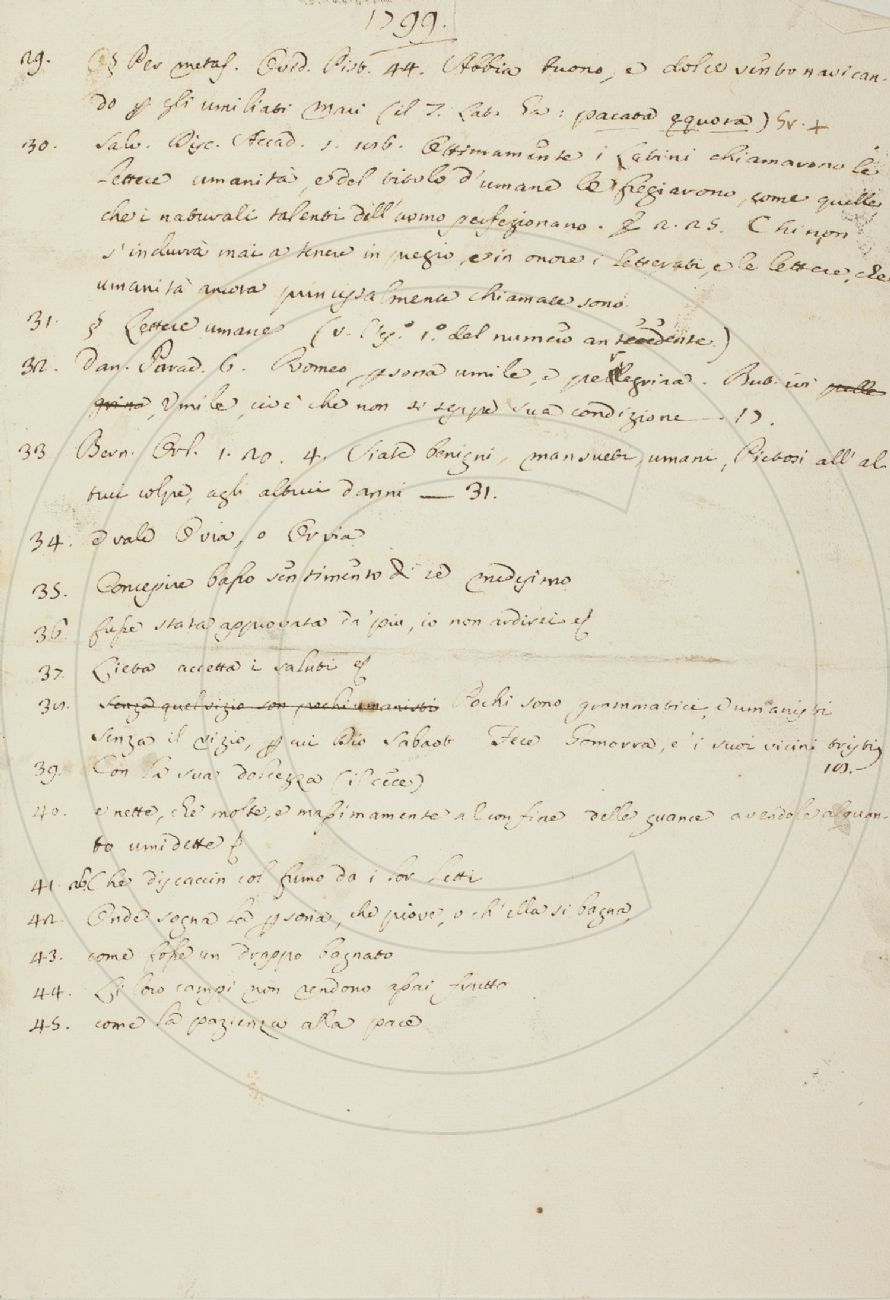 1799.
29. § Per metaf. Ovid. Pist. 44. Abbia buono, e dolce vento navican-
do p gli umiliati mari (il T. Lat. ha: pacata equora) Gr. +
30. Salv. Disc. Accad. 1. Ottimamente i Latini chiamarono le
lettere umanità, e del titolo d'umane le fregiarono, come quelle
che i naturali talenti dell'uomo perfezionano. E 2. 25. Chi non
s'indurrà mai a tenere in pregio, e in onore i letterati, e le lettere, che
umanità ancora principalmente chiamate sono.
31. § Lettere umane (v. l'es.º 1.º del numero antecedente.)
32. Dan. Parad. 6. Romeo psona umile, e pellegrina. But. ivi pelle
grina, Umile, cioè che non si seppe sua condizione —. 17.
33 Bern. Orl. 1. 20. 4. Siate benigni, mansueti, umani, Pietosi all'al
trui colpe, agli altrui danni — 31.
34. e vale Ovia, o Ovvia
35. Concepire basso sentimento di se medesimo
36. fusse stata approvata da' più, io non ardirei
37. Lieta accetta i saluti
38. Senza quel vizio son pochi umanisti Pochi sono grammatici, e umanisti
senza il vizio, p cui Dio Sabaot Fece Gomorra, e i suoi vicini tristi
101.
39. Con la sua dolcezza (il cece)
40. e nette, che molte, e massimamente al confine delle guance avendole alquan-
to umidette
41. ab. Che discaccin col fumo da i lor letti
42. Onde sogna la psona, che piove, o ch'ella si bagna,
43. come fosse un drappo bagnato
44. Li loro campi non rendono assai frutto
45. come la pazienza alla pace